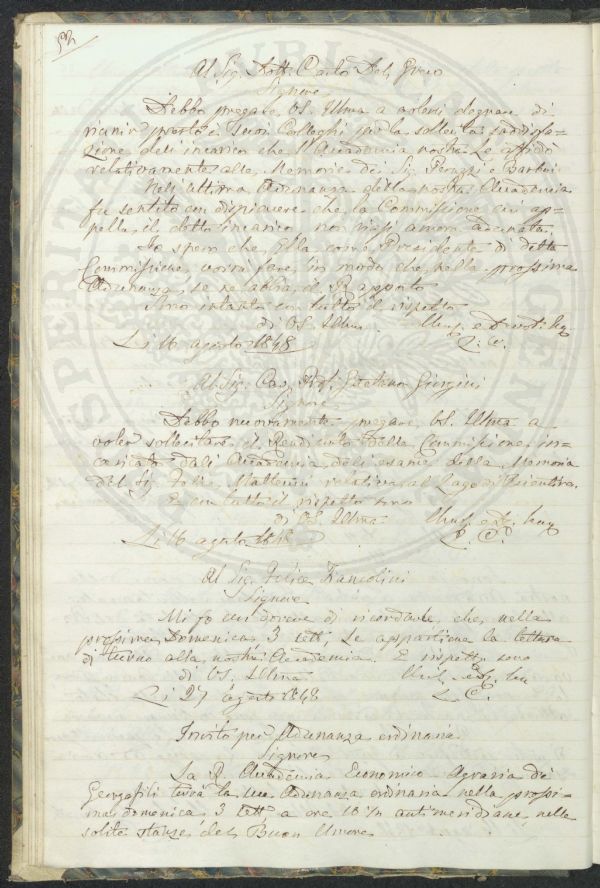 Al Sig. Dott. Carlo Del Greco
Signore
Debbo pregare VS. Illma a volersi degnare di
riunir presto i Suoi Colleghi per la sollecita soddisfa=
zione dell'incarico che l'Accademia nostra Le affidò
relativamente alle Memorie dei Sig. Peruzzi e
Nell'ultima Adunanza della nostra Accademia
fu sentito con dispiacere che la Commissione cui ap=
pella il detto incarico non siasi ancora adunata.
Io spero che Ella come Presidente di detta
Commissione, vorrà fare in modo che nella prossima
Adunanza, se ne abbia il Rapporto
Sono intanto con tutto il rispetto
di VS. Illma
Li 16 agosto 1848
Al Sig. Cav. Prof. Gaetano Giorgini
Signore
Debbo nuovamente pregare VS. Illma a
voler sollecitare il Rendiconto della Commissione in=
caricata dall'Accademia dell'esame della Memoria
del Sig. Matteucci relativa al Lago di Bientina.
E con tutto il rispetto sono
di VS. Illma
Li 16 agosto 1848
Al Sig. Felice Francolini
Signore
Mi fo un dovere di ricordarle, che nella
prossima Domenica 3 Sett. Le appartiene la lettura
di turno alla nostra Accademia. E rispetto sono
di VS. Illma
Li 27 agosto 1848
Invito per Adunanza ordinaria
Signore
La R. Accademia Economico Agraria dei
Georgofili terrà la sua Adunanza ordinaria nella prossi=
ma domenica 3 Sett. a ore 10 ½ antimeridiane, nelle
solite stanze del Buon Umore